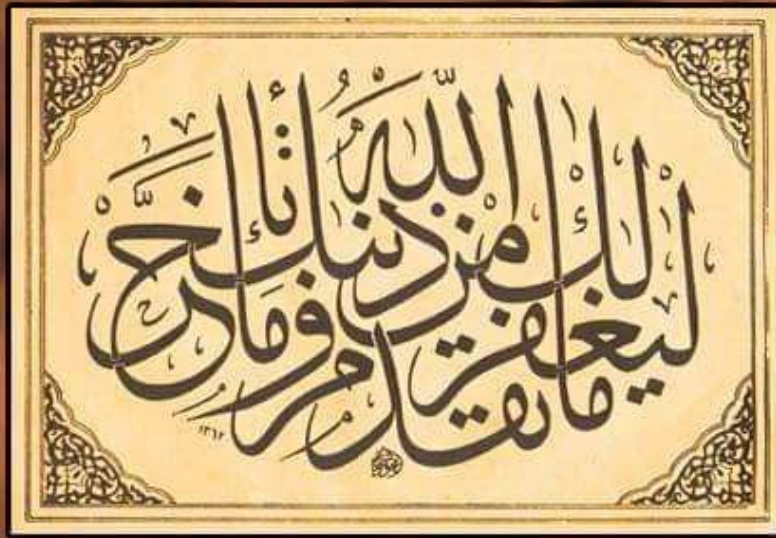 ليغفر لك الله ما تقدم من ذنبك وما تأخر